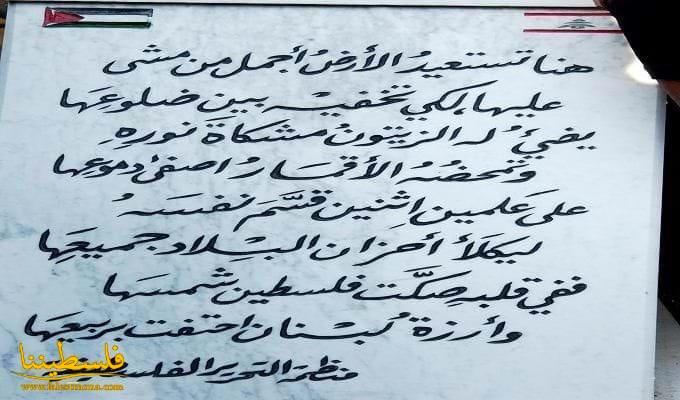 هنا تستعيدُ الأرضُ أجمل من مشى
عليها، لكي تخفيهْ بين ضلوعِهَا
يضيءُ له الزيتونُ مشكاةَ نورِهِ
وتمحضُهُ الأقمَارُ اصفىٰ دموعِها
علىَ عَلمين اثِنين قسَّمَ نفسَهُ
ليكلأ أحزان البِلاد جميعَِها
ففي قلبهِ صكَّت فلسطين شمسَها
وأرزة لُبْنان احتفت بربيعهَا
منظمة التحرير
فلسطيننا
www.falestinona.com